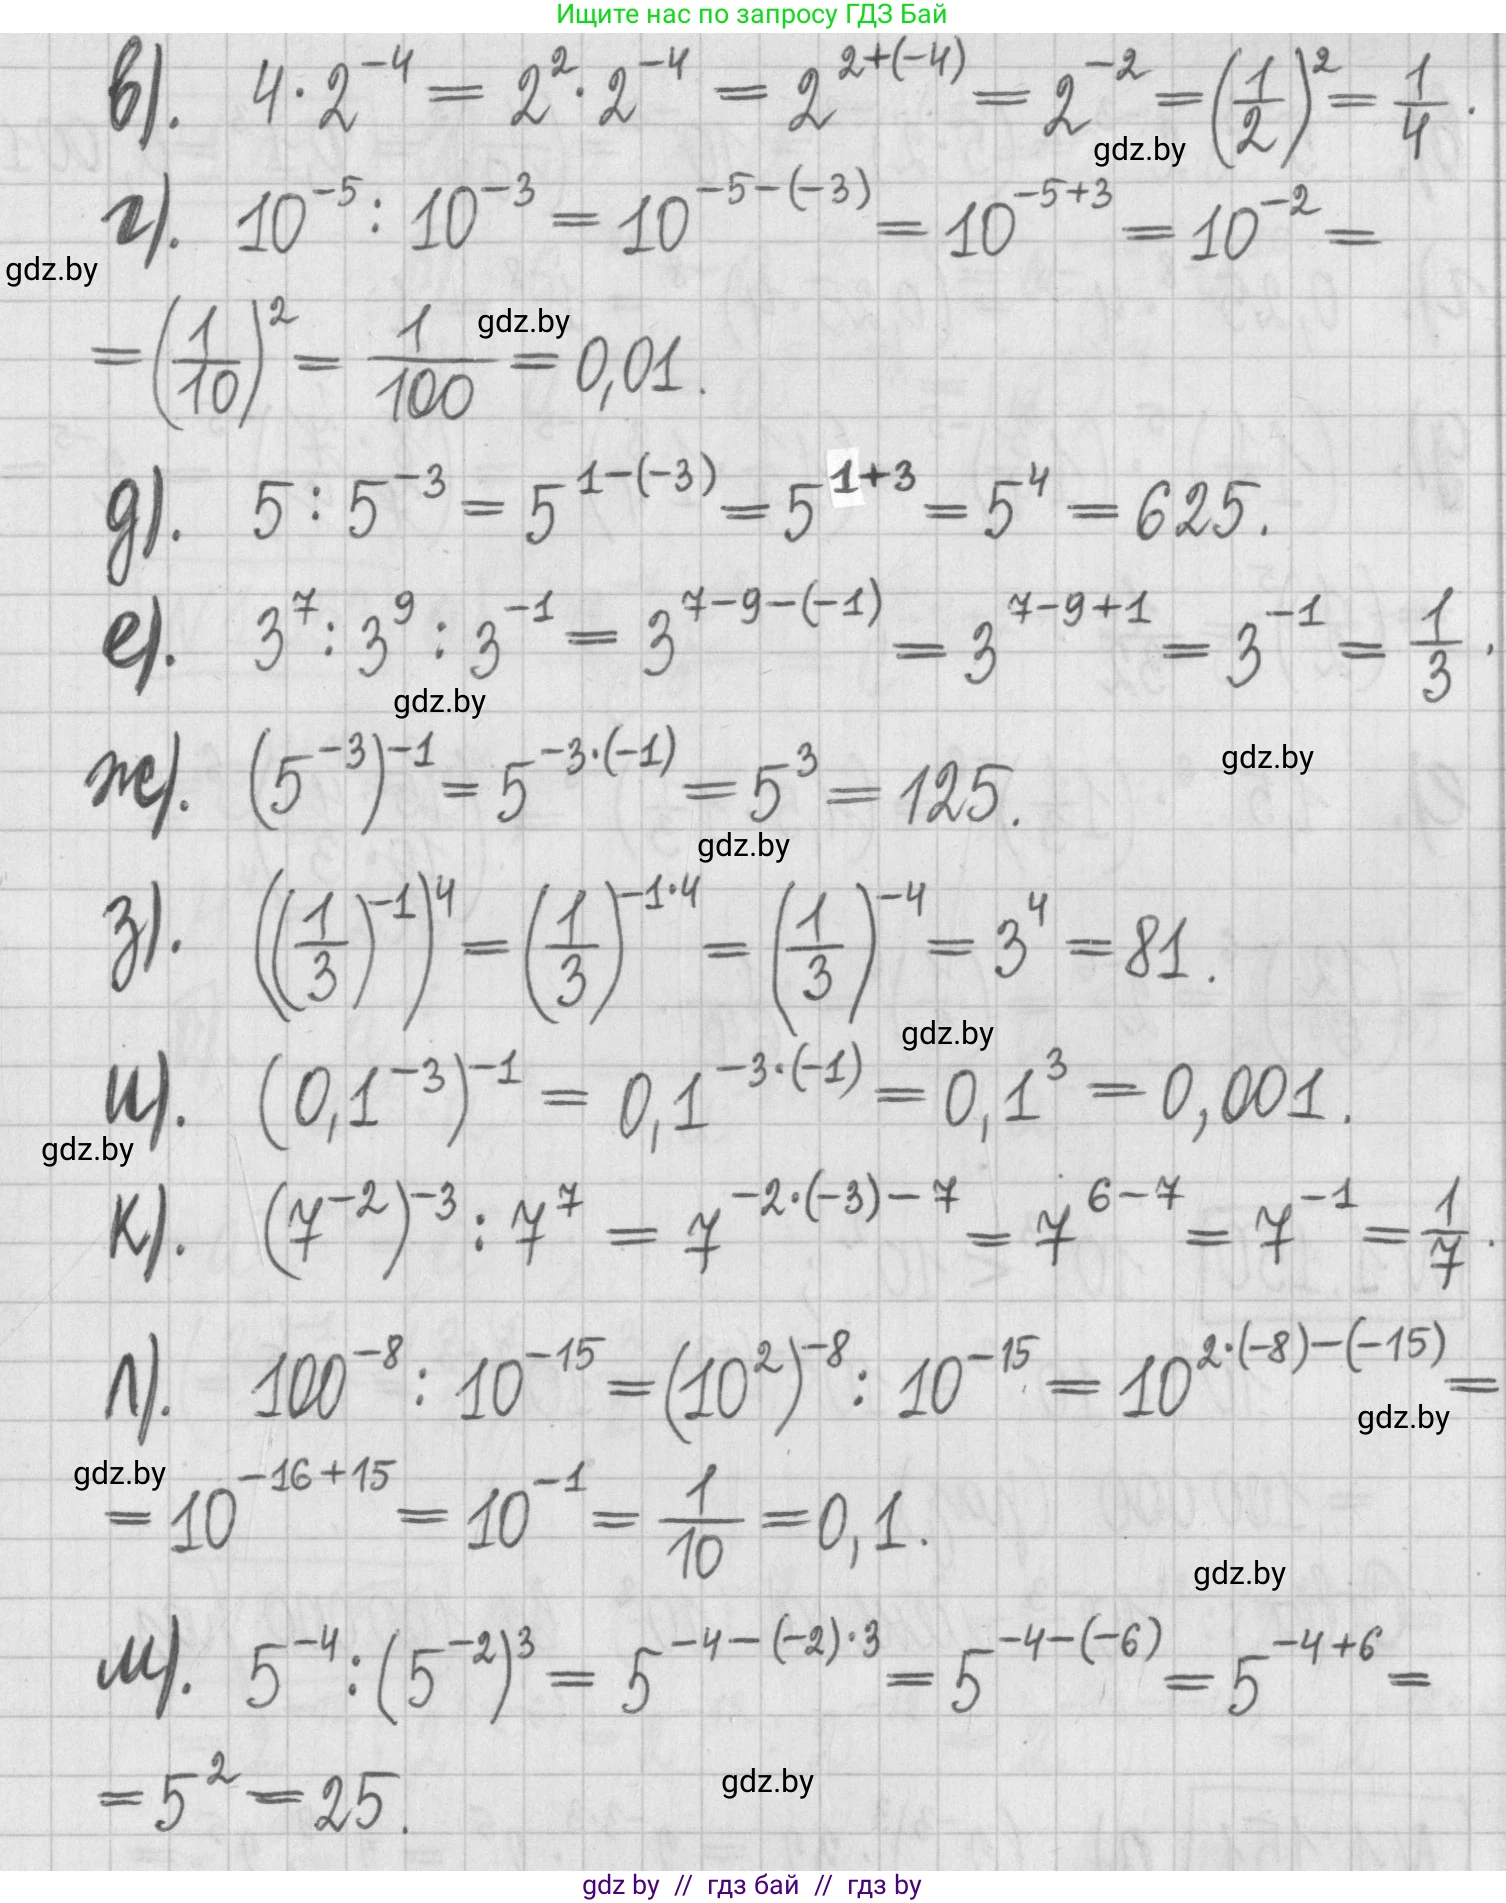 Ищите нас по запросу ГДЗ Бай
в). 4 · 2^{-4} = 2^2 · 2^{-4} = 2^{2+(-4)} = 2^{-2} = (1/2)^2 = 1/4 .
gdz.by
г). 10^{-5} : 10^{-3} = 10^{-5-(-3)} = 10^{-5+3} = 10^{-2} =
gdz.by
= (1/10)^2 = 1/100 = 0,01.
gdz.by
д). 5 : 5^{-3} = 5^{1-(-3)} = 5^{1+3} = 5^4 = 625.
е). 3^7 : 3^9 : 3^{-1} = 3^{7-9-(-1)} = 3^{7-9+1} = 3^{-1} = 1/3 .
gdz.by
ж). (5^{-3})^{-1} = 5^{-3·(-1)} = 5^3 = 125.
gdz.by
gdz.by
з). ((1/3)^{-1})^4 = (1/3)^{-1·4} = (1/3)^{-4} = 3^4 = 81.
gdz.by
и). (0,1^{-3})^{-1} = 0,1^{-3·(-1)} = 0,1^3 = 0,001.
gdz.by
к). (7^{-2})^{-3} : 7^7 = 7^{-2·(-3)-7} = 7^{6-7} = 7^{-1} = 1/7 .
л). 100^{-8} : 10^{-15} = (10^2)^{-8} : 10^{-15} = 10^{2·(-8)-(-15)} =
gdz.by
gdz.by
= 10^{-16+15} = 10^{-1} = 1/10 = 0,1.
gdz.by
м). 5^{-4} : (5^{-2})^3 = 5^{-4-(-2)·3} = 5^{-4-(-6)} = 5^{-4+6} =
= 5^2 = 25.
gdz.by
gdz by // гдз бай // гдз by